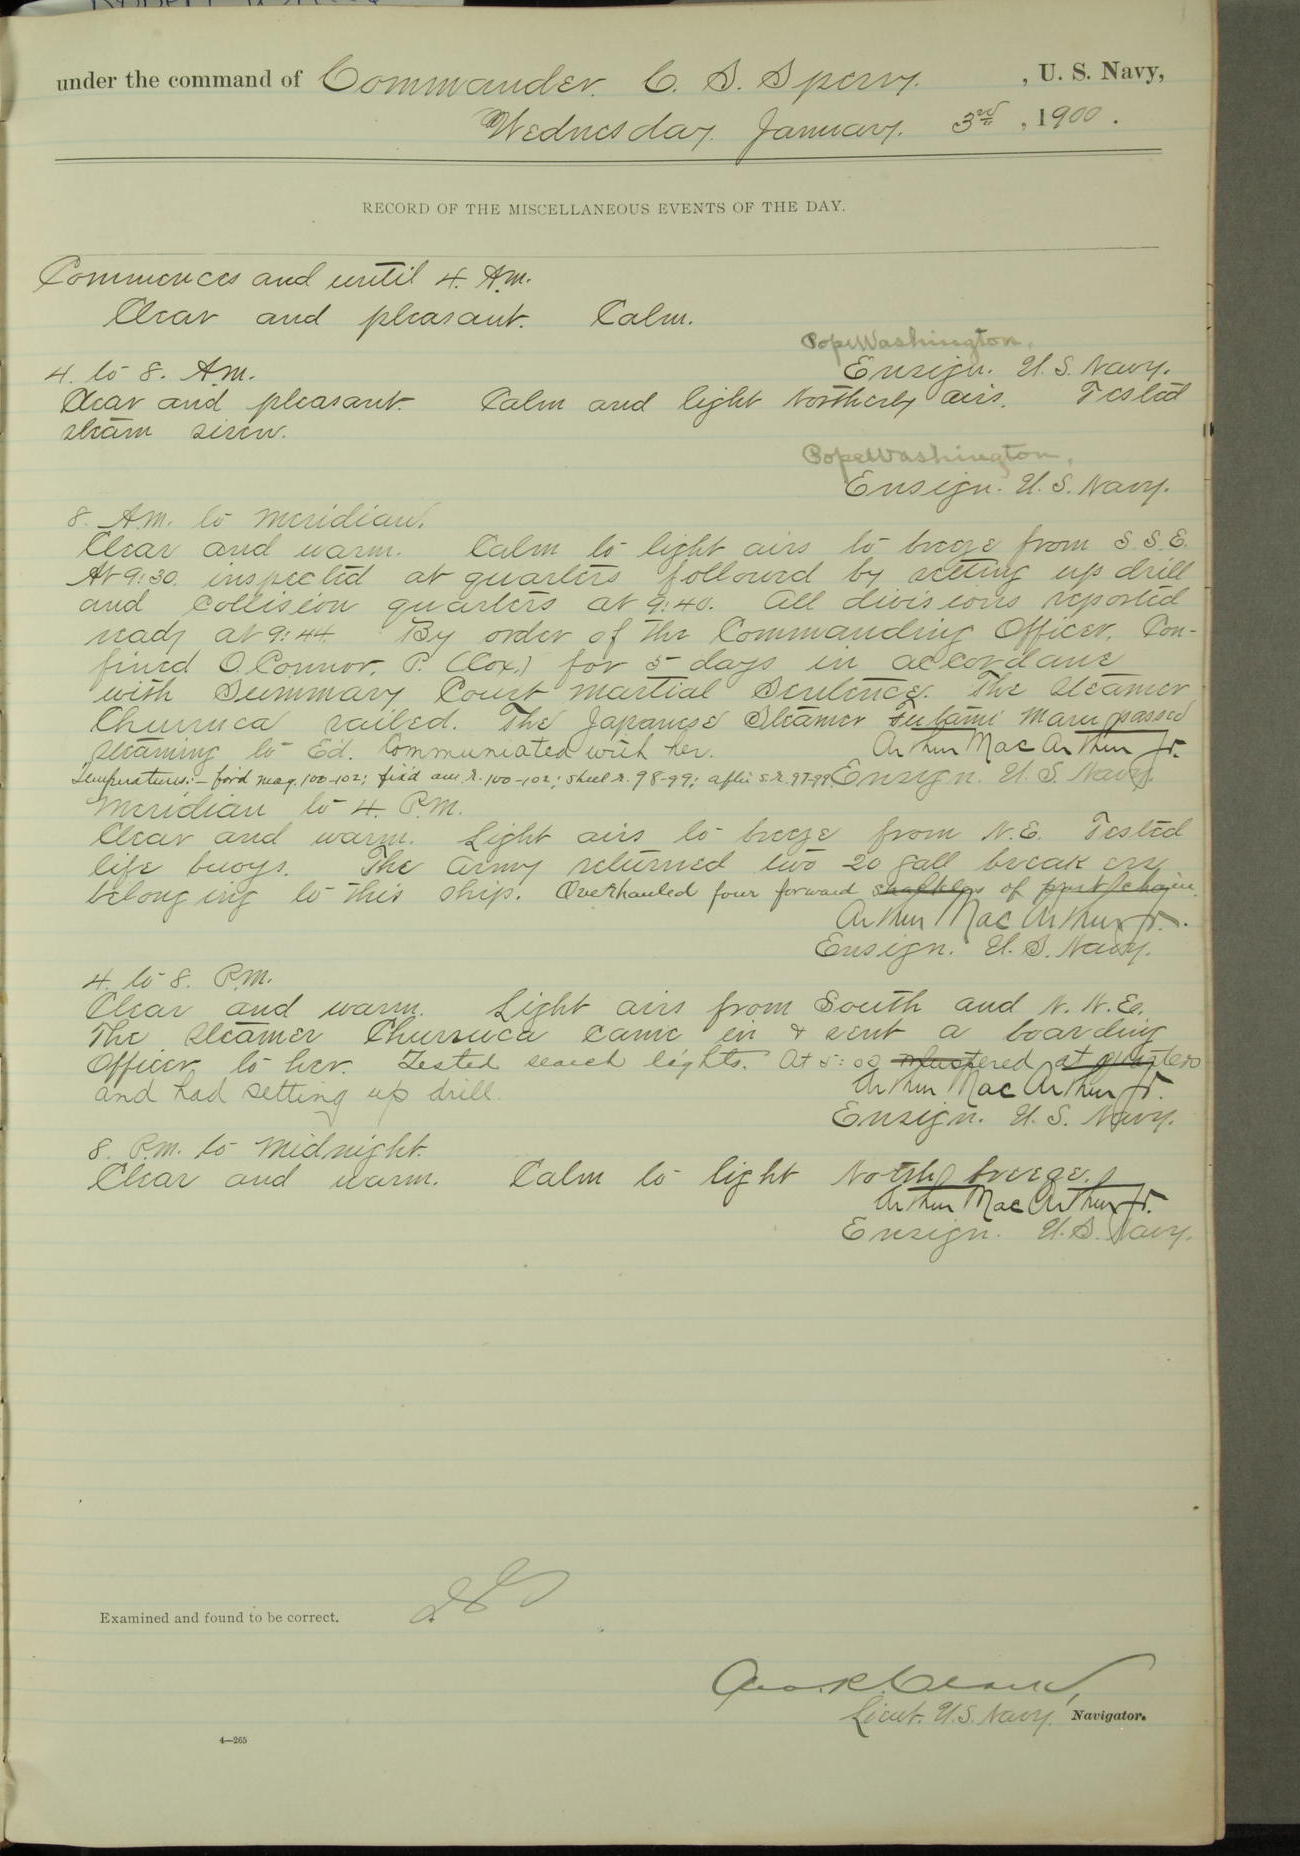 under the command of Commander. C. S. Sperry. , U. S. Navy,
Wednesday. January. 3rd , 1900.
RECORD OF THE MISCELLANEOUS EVENTS OF THE DAY.
Commences and until 4. A.M.
Clear and pleasant. Calm.
Pope Washington,
Ensign. U. S. Navy.
4. to 8. A.M.
Clear and pleasant. Calm and light Northerly airs. Tested
steam siren.
Pope Washington,
Ensign. U. S. Navy.
8. A.M. to Meridian.
Clear and warm. Calm to light airs to breeze from S. S. E.
At 9:30 inspected at quarters followed by setting up drill
and collision quarters at 9:40. All divisions reported
ready at 9:44 By order of the Commanding Officer, Con-
fined O'Connor. P. (Cox.) for 5 days in accordance
with Summary Court martial Sentence. The steamer
Churruca sailed. The Japanese Steamer Futami Maru passed
steaming to Ed. Communicated with her.
Arthur MacArthur Jr.
Temperatures:- for'd mag. 100-102; fix'd am. r. 100-102; shell r. 98-99; after s.r. 97-99.
Ensign. U. S. Navy.
Meridian to 4. P.M.
Clear and warm. Light airs to breeze from N. E. Tested
life buoys. The Army returned two 20 gall breakers
belonging to this ship. Overhauled four forward shackles of port chain.
Arthur MacArthur Jr.
Ensign. U. S. Navy.
4. to 8. P.M.
Clear and warm. Light airs from South and N. N. E.
The steamer Churruca came in & sent a boarding
Officer to her. Tested search lights. At 5:02 mustered at quarters
and had setting up drill.
Arthur MacArthur Jr.
Ensign. U. S. Navy.
8. P.M. to Midnight.
Clear and warm. Calm to light North breeze.
Arthur MacArthur Jr.
Ensign. U. S. Navy.
Examined and found to be correct.
Lieut. U. S. Navy, Navigator.
4—265